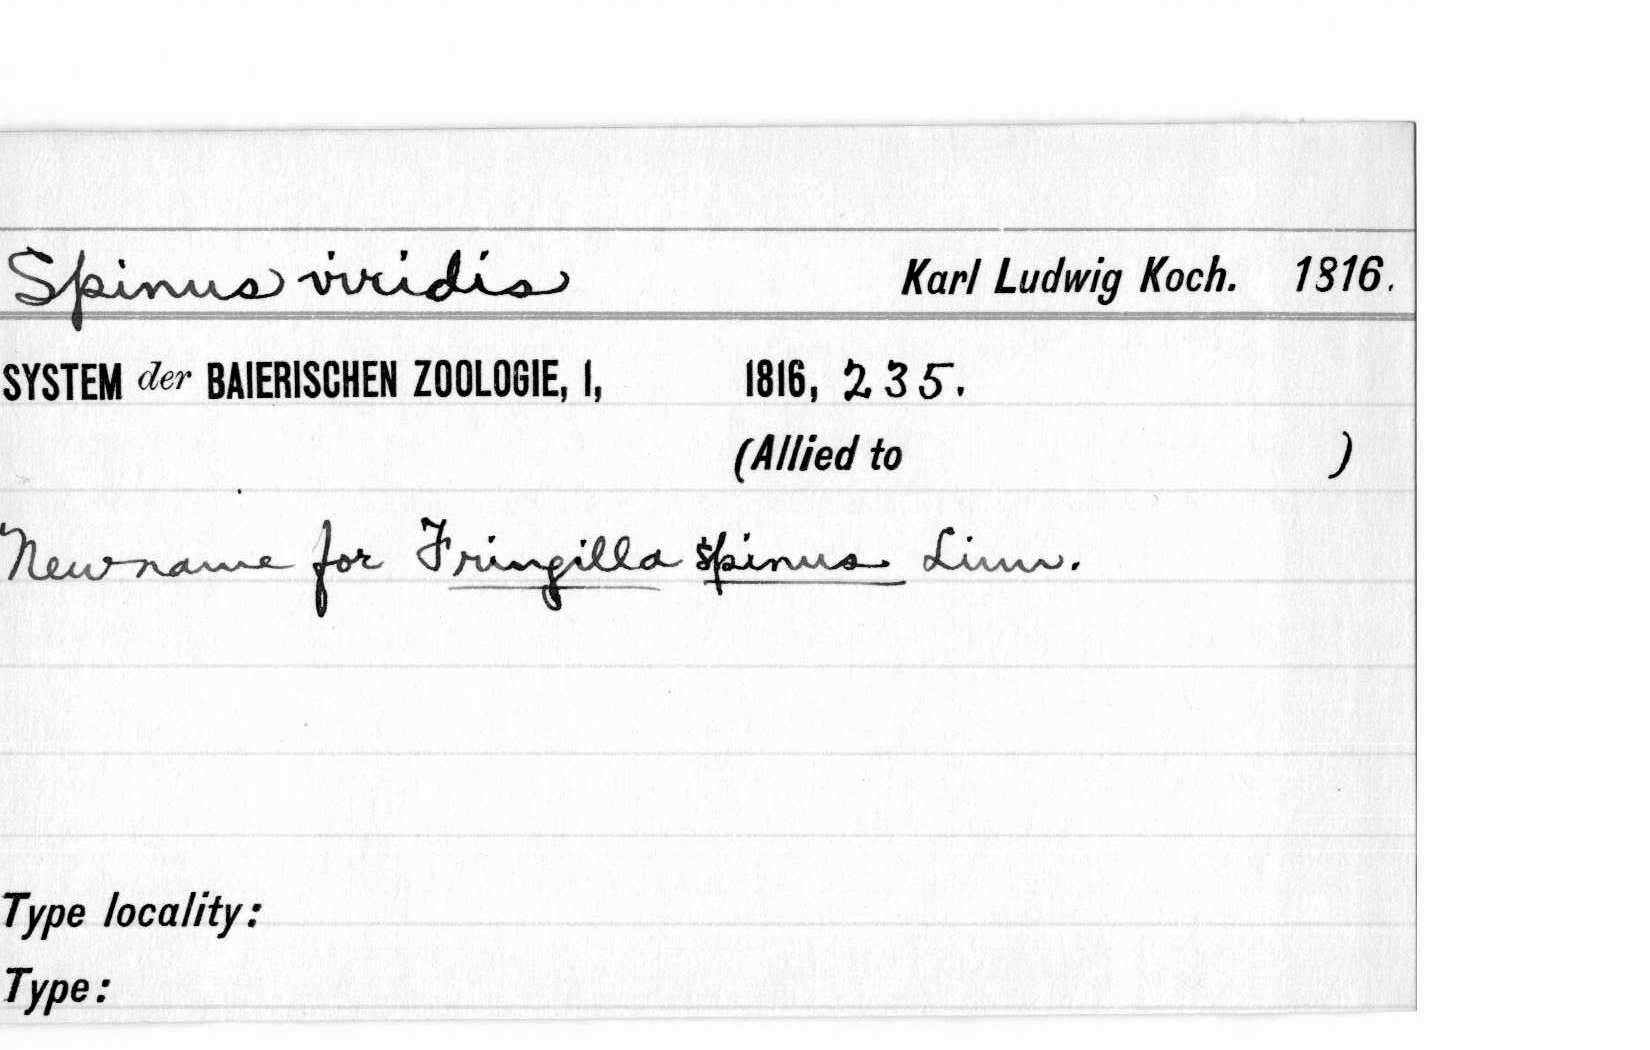 Spinus viridis Karl Ludwig Koch. 1816.
SYSTEM der BAIERISCHEN ZOOLOGIE, I, 1816, 235.
(Allied to )
New name for Fringilla spinus Linn.
Type locality:
Type: